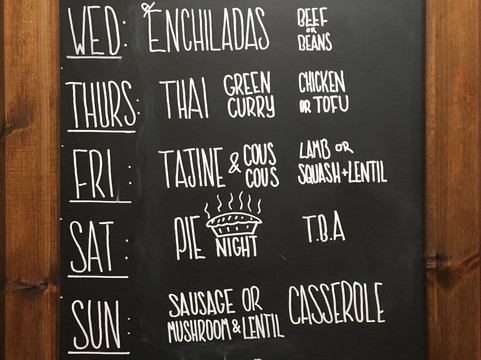 WED: ENCHILADAS BEEF
OR
BEANS
THURS: THAI GREEN CURRY CHICKEN
OR TOFU
FRI: TAJINE & COUS COUS LAMB OR
SQUASH + LENTIL
SAT: PIE NIGHT T.B.A
SUN: SAUSAGE OR
MUSHROOM & LENTIL CASSEROLE